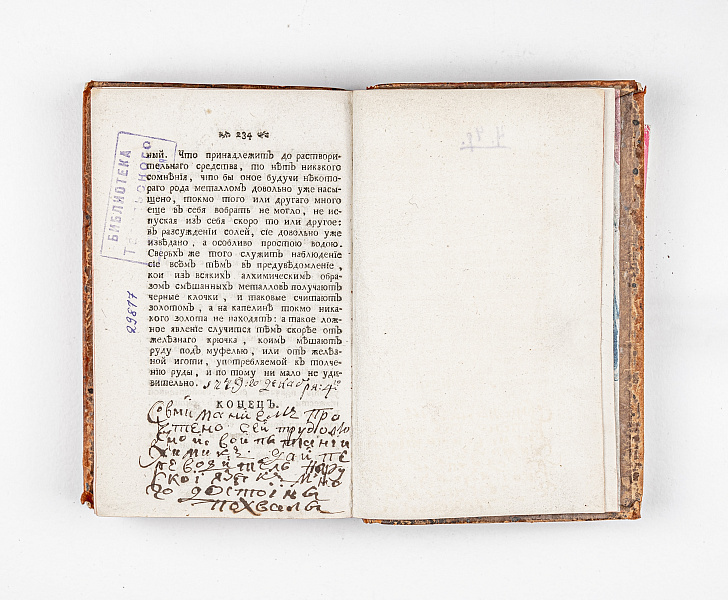 234
ный. Что принадлежитъ до раствори-
тельнаго средства, то нѣтъ никакого
сомнѣнія, что бы оное будучи нѣкото-
раго рода металломъ довольно уже насы-
щено, токмо того или другаго много
еще въ себя вобрать не могло, не ис-
пуская изъ себя скоро то или другое:
въ разсужденіи солей, сіе довольно уже
извѣдано, а особливо простою водою.
Сверьхъ же того служитъ наблюденіе
сіе всѣмъ тѣмъ въ предувѣдомленіе,
кои изъ всякихъ алхимическимъ обра-
зомъ смѣшанныхъ металловъ получаютъ
черные клочки, и таковые считаютъ
золотомъ, а на капелинѣ токмо ника-
кого золота не находятъ: а такое лож-
ное явленіе случится тѣмъ скорѣе отъ
желѣзнаго крючка, коимъ мѣшаютъ
руду подъ муфелью, или отъ желѣз-
ной иготи, употребляемой къ толче-
нію руды, и по тому ни мало не уди-
вительно.
КОНЕЦЪ.
сей
достоінъ
похвалы
БИБЛИОТЕКА
29817